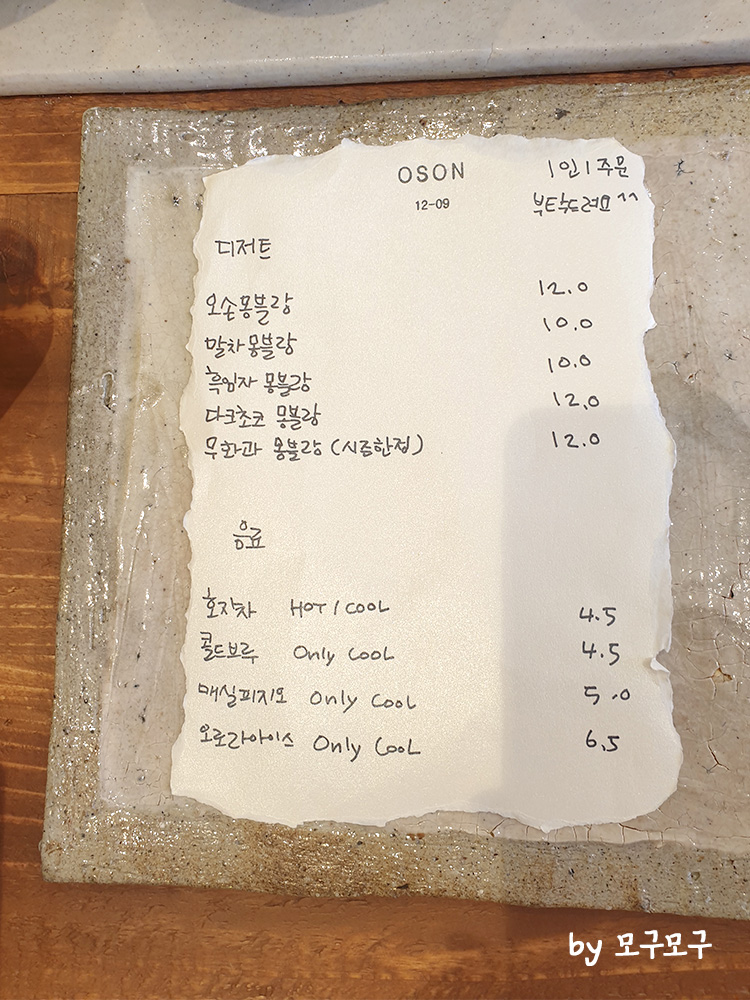 OSON
12-09
1인 1주문
부탁드려요^^
디저트
오손몽블랑 12.0
말차몽블랑 10.0
흑임자 몽블랑 10.0
다크초코 몽블랑 12.0
무화과 몽블랑 (시즌한정) 12.0
음료
호지차 HOT / COOL 4.5
콜드브루 Only COOL 4.5
매실피지오 Only COOL 5.0
오로라아이스 Only COOL 6.5
by 모구모구